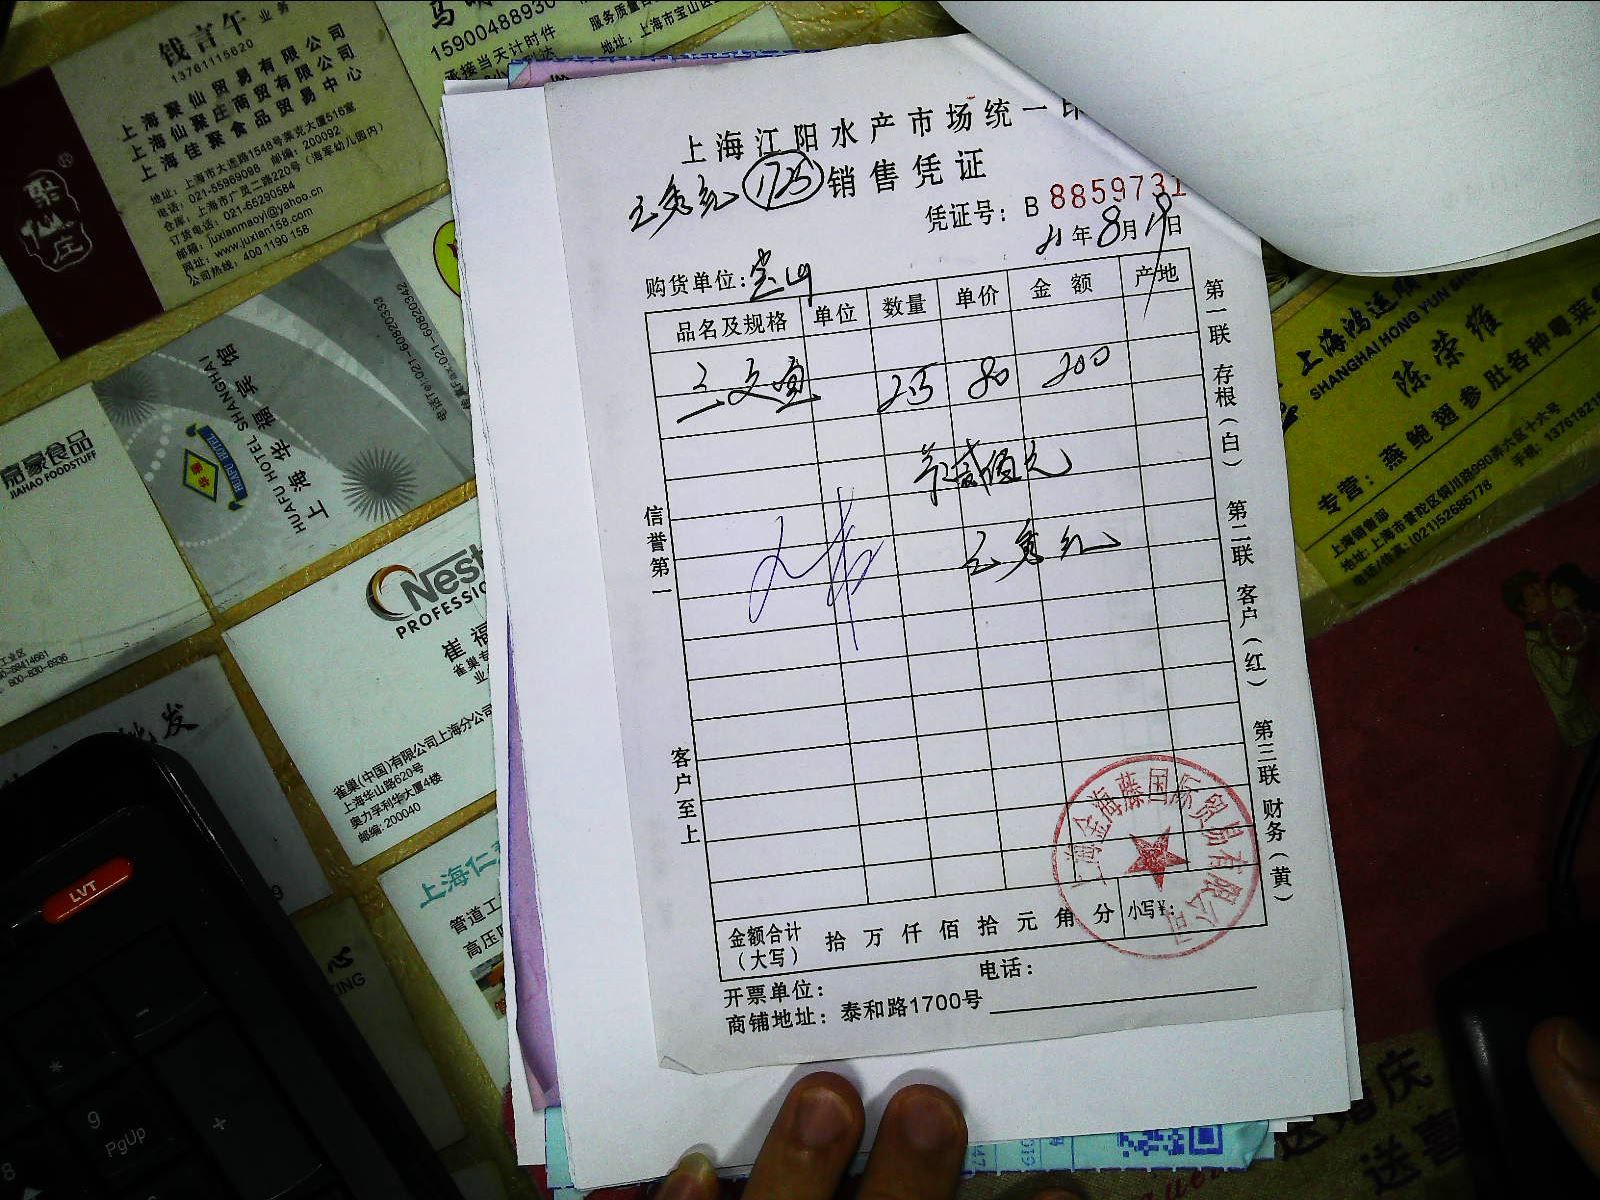 钱言午 业务
13761115620
上海聚仙贸易有限公司
上海仙聚庄商贸有限公司
上海佳聚食品贸易中心
地址：上海市大连路1548号莱克大厦516室
电话：021-55969098 邮编：200092
仓库：上海市广灵二路220号（海军幼儿园内）
订货电话：021-65290584
邮箱：juxianmaoyi@yahoo.cn
网址：www.juxian158.com
公司热线：400 1190 158
聚仙庄
15900488930
承接当天计时件
服务质量
地址：上海市宝山区
上海江阳水产市场统一印
王秀红 125 销售凭证
凭证号：B 8859731
21年8月19日
购货单位：宝山
品名及规格 单位 数量 单价 金额 产地
三文鱼 2.5 80 200
第一联 存根（白） 第二联 客户（红） 第三联 财务（黄）
信誉第一
客户至上
王秀红
上海金海藤国际贸易有限公司
金额合计（大写） 拾 万 仟 佰 拾 元 角 分 小写¥：
开票单位： 电话：
商铺地址：泰和路1700号
嘉豪食品
JIAHAO FOODSTUFF
上海华福宾馆
HUAFU HOTEL SHANGHAI
电话Tel:021-60820333
传真Fax:021-60820342
PROFESSIO
雀巢（中国）有限公司上海分公司
上海华山路620号
奥力孚利华大厦4楼
邮编：200040
批发
上海仁
管道工
高压
LVT
9
PgUp
8
上海鸿运顺
SHANGHAI HONG YUN SH
陈荣雄
专营：燕鲍翅参肚各种粤菜
上海销售部
地址：上海市普陀区铜川路990弄六区十六号
电话/传真：(021)52686778
手机：137618216
婚庆
送喜